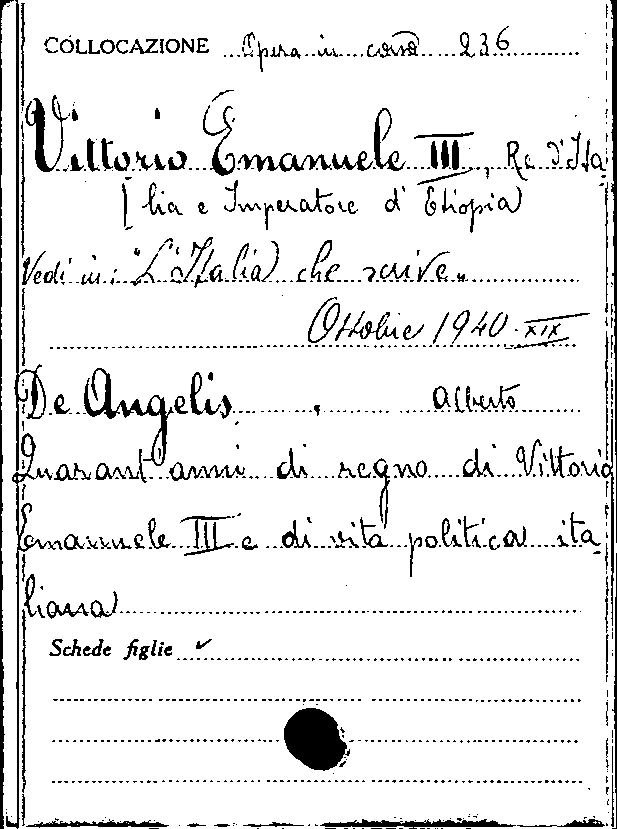 COLLOCAZIONE Opera in corso 236
Vittorio Emanuele III, Re d'Ita-
[lia e Imperatore d'Etiopia
Vedi in: "L'Italia che scrive„
Ottobre 1940-XIX
De Angelis, Alberto
Quarant'anni di regno di Vittorio
Emanuele III e di vita politica ita-
liana
Schede figlie ✓